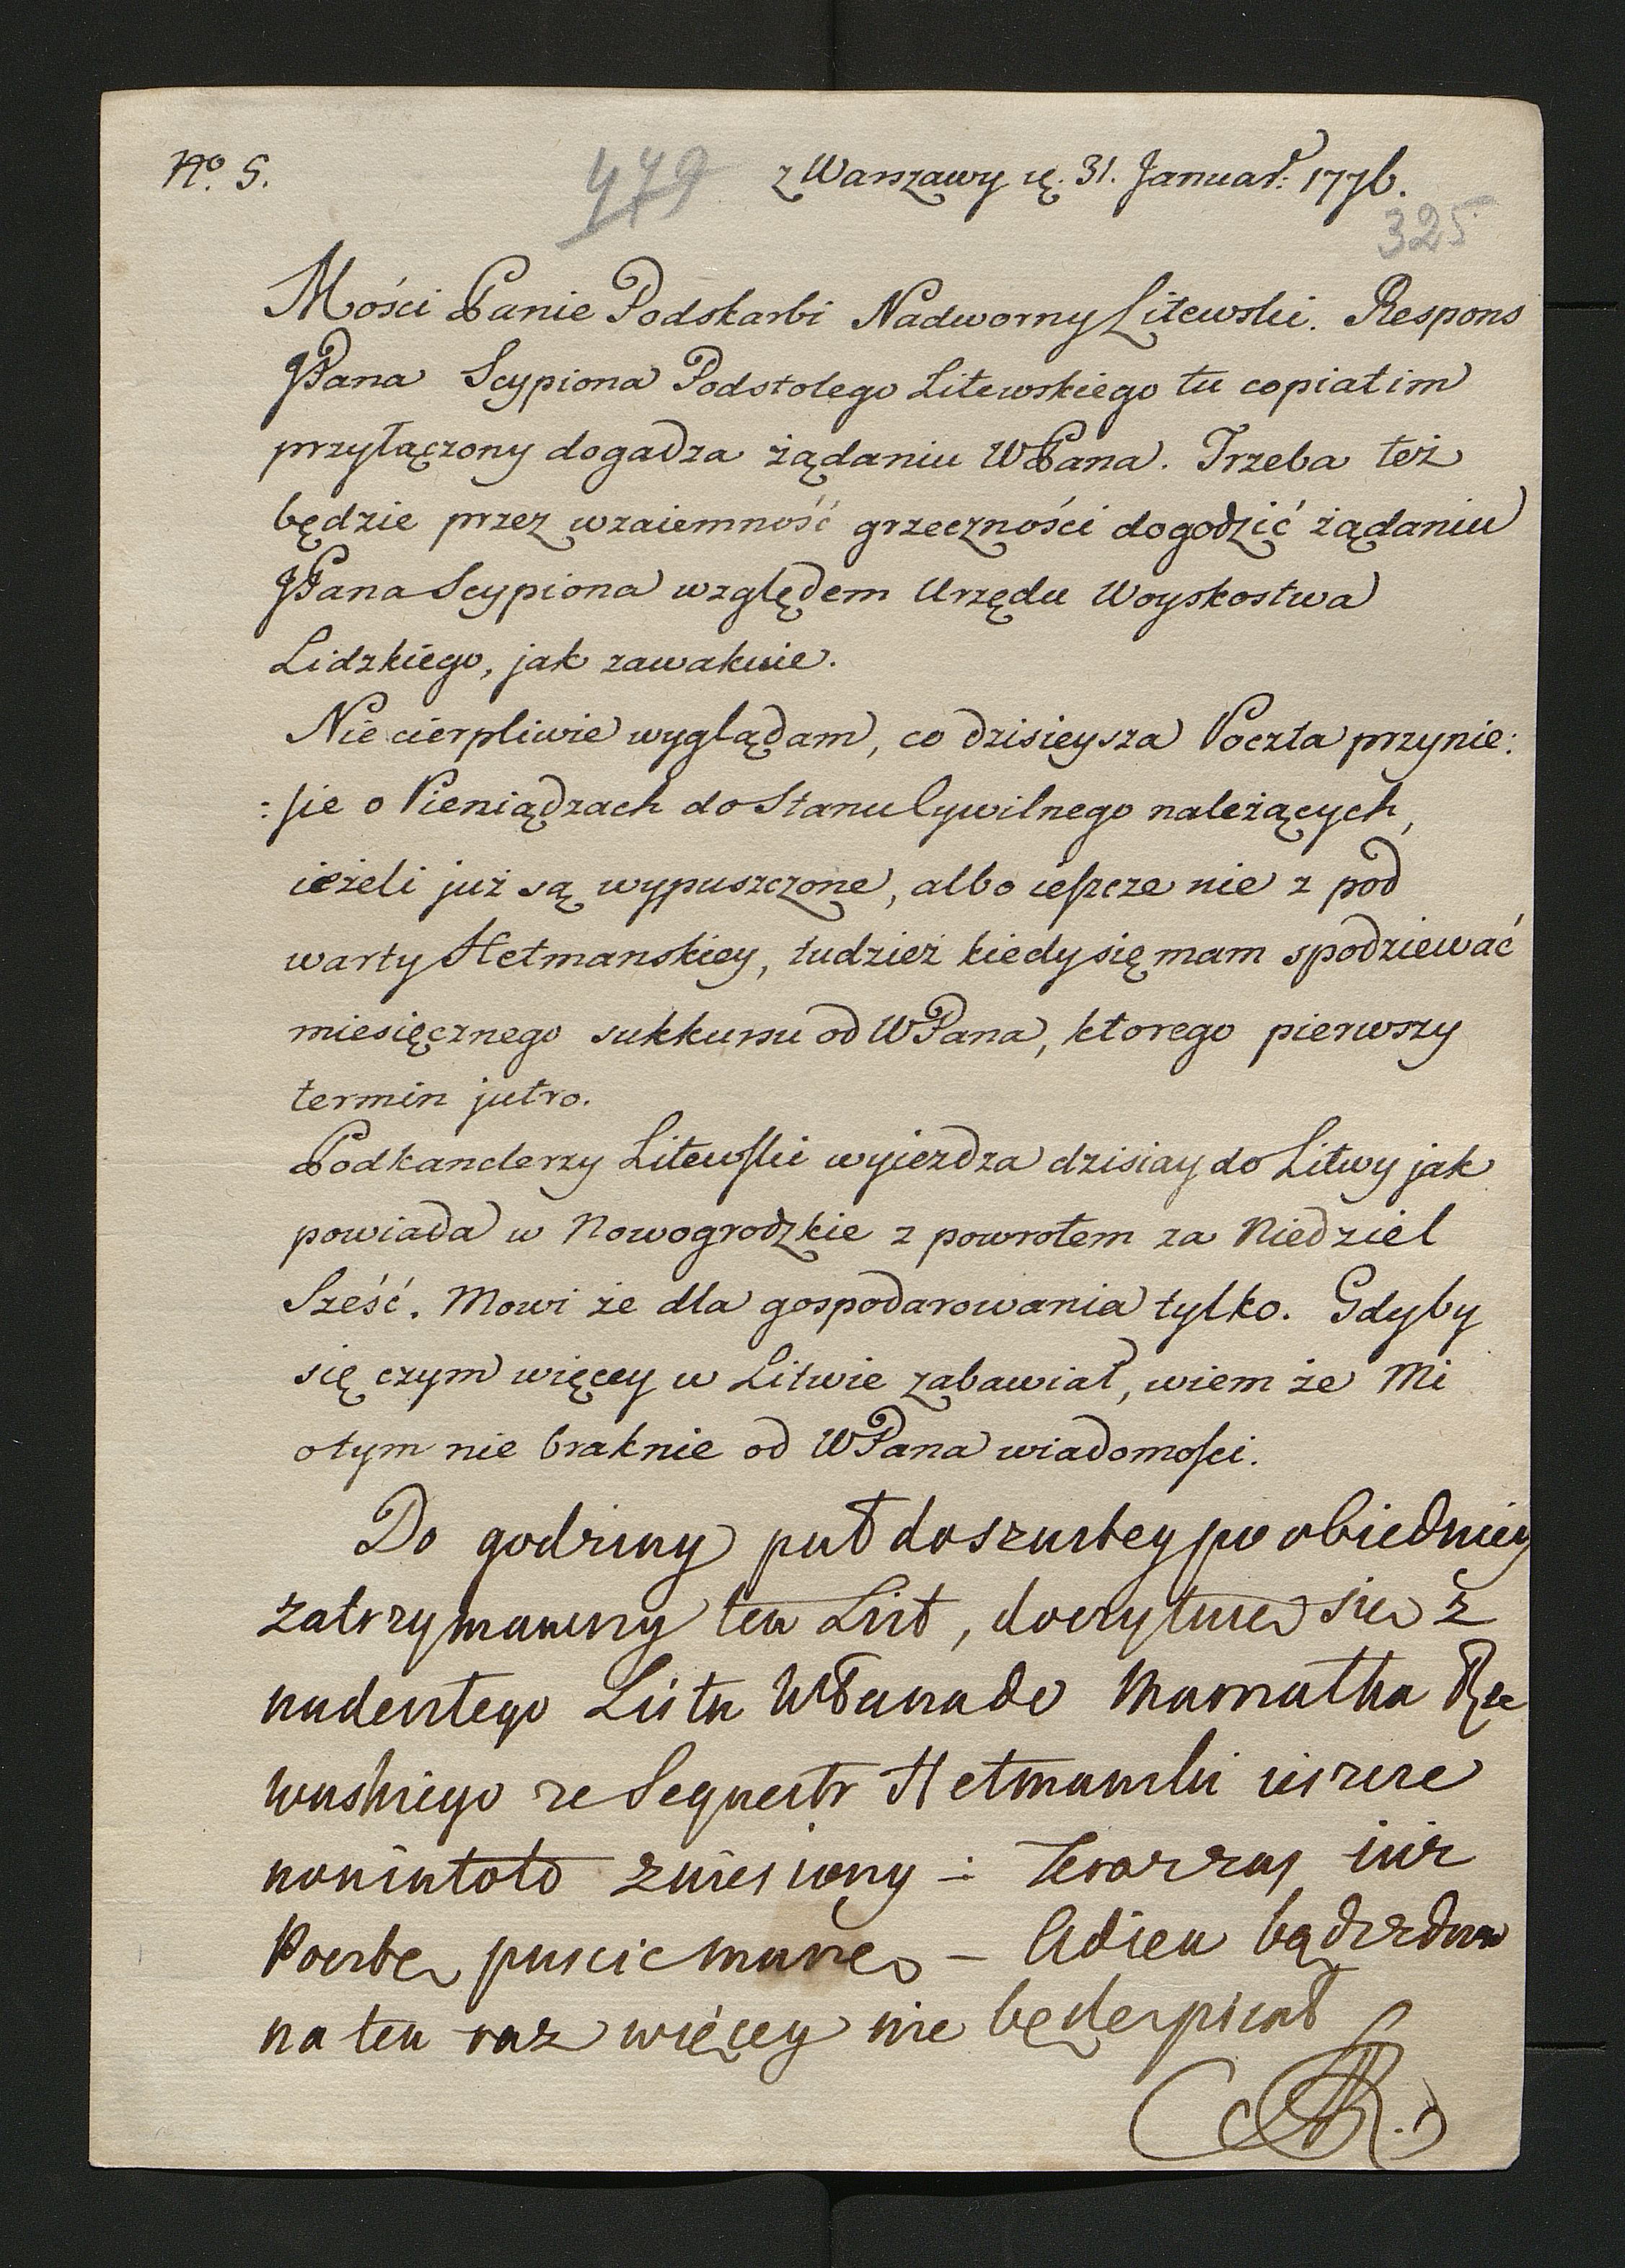 No. 5.
479
z Warszawy d. 31. Januar: 1776.
325
Mości Panie Podskarbi Nadworny Litewski. Respons
JPana Scypiona Podstolego Litewskiego tu copiatim
przyłączony dogadza żądaniu WPana. Trzeba też
będzie przez wzaiemność grzeczności dogodzić żądaniu
JPana Scypiona względem Urzędu Woyskostwa
Lidzkiego, jak zawakuie.
Niecierpliwie wyglądam, co dzisieysza Poczta przynie:
:sie o Pieniądzach do Stanu Cywilnego należących,
ieżeli już są wypuszczone, albo ieszcze nie z pod
warty Hetmanskiey, tudzież kiedy się mam spodziewać
miesięcznego sukkursu od WPana, ktorego pierwszy
termin jutro.
Podkanclerzy Litewski wyiezdza dzisiay do Litwy jak
powiada w Nowogrodzkie z powrotem za Niedziel
Sześć. Mowi że dla gospodarowania tylko. Gdyby
się czym więcey w Litwie zabawiał, wiem że Mi
o tym nie braknie od WPana wiadomości.
Do godziny puł do szustey po obiedniey
zatrzymawszy ten List, doczytuie sie z
nadeszłego Listu WPana do Marszałka Rze
wuskiego ze Sequestr Hetmanski ieszcze
non in toto zniesiony - Teraz zas iuż
Poczte puscic muszę - Adieu bądz zdrow
na ten raz więcey nie będe pisał
SAR.